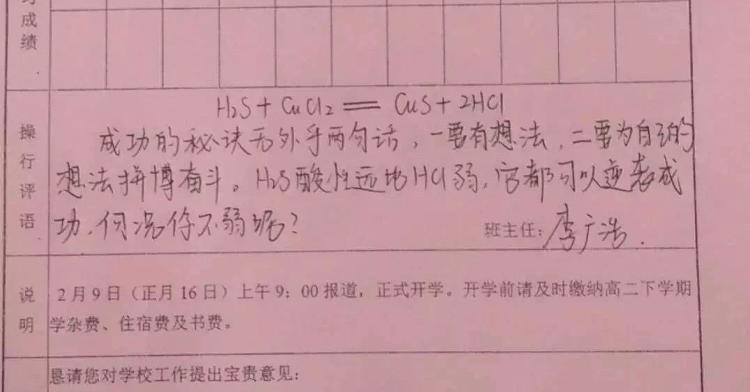 成
绩
H₂S + CuCl₂ ══ CuS + 2HCl
操
行
评
语
成功的秘诀无外乎两句话，一要有想法，二要为自己的
想法拼博奋斗。H₂S酸性远比HCl弱，它都可以逆袭成
功，何况你不弱呢？
班主任：李广浩.
说
明
2月9日（正月16日）上午9：00报道，正式开学。开学前请及时缴纳高二下学期
学杂费、住宿费及书费。
恳请您对学校工作提出宝贵意见：